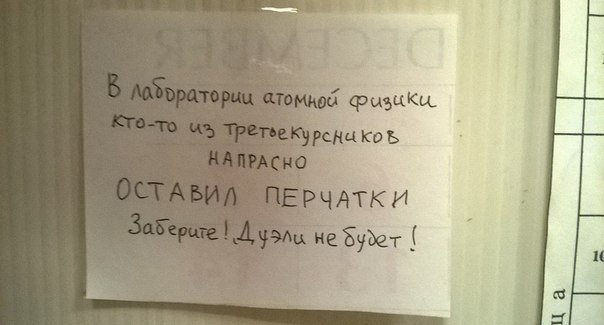 DECEMBER
В лаборатории атомной физики
кто-то из третьекурсников
НАПРАСНО
ОСТАВИЛ ПЕРЧАТКИ
Заберите! Дуэли не будет!
ца